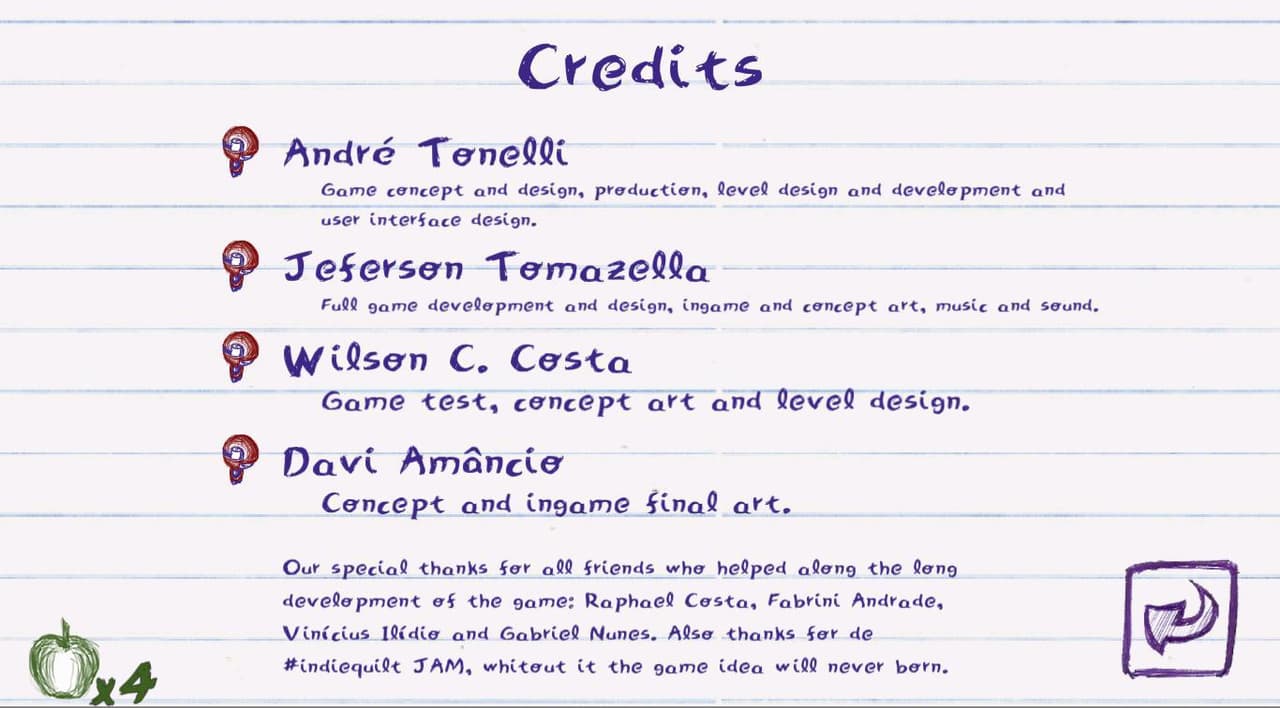 Credits
André Tonelli
Game concept and design, production, level design and development and
user interface design.
Jeferson Tomazella
Full game development and design, ingame and concept art, music and sound.
Wilson C. Costa
Game test, concept art and level design.
Davi Amâncio
Concept and ingame final art.
Our special thanks for all friends who helped along the long
development of the game: Raphael Costa, Fabrini Andrade,
Vinícius Ilídio and Gabriel Nunes. Also thanks for de
#indiequilt JAM, whitout it the game idea will never born.
x4